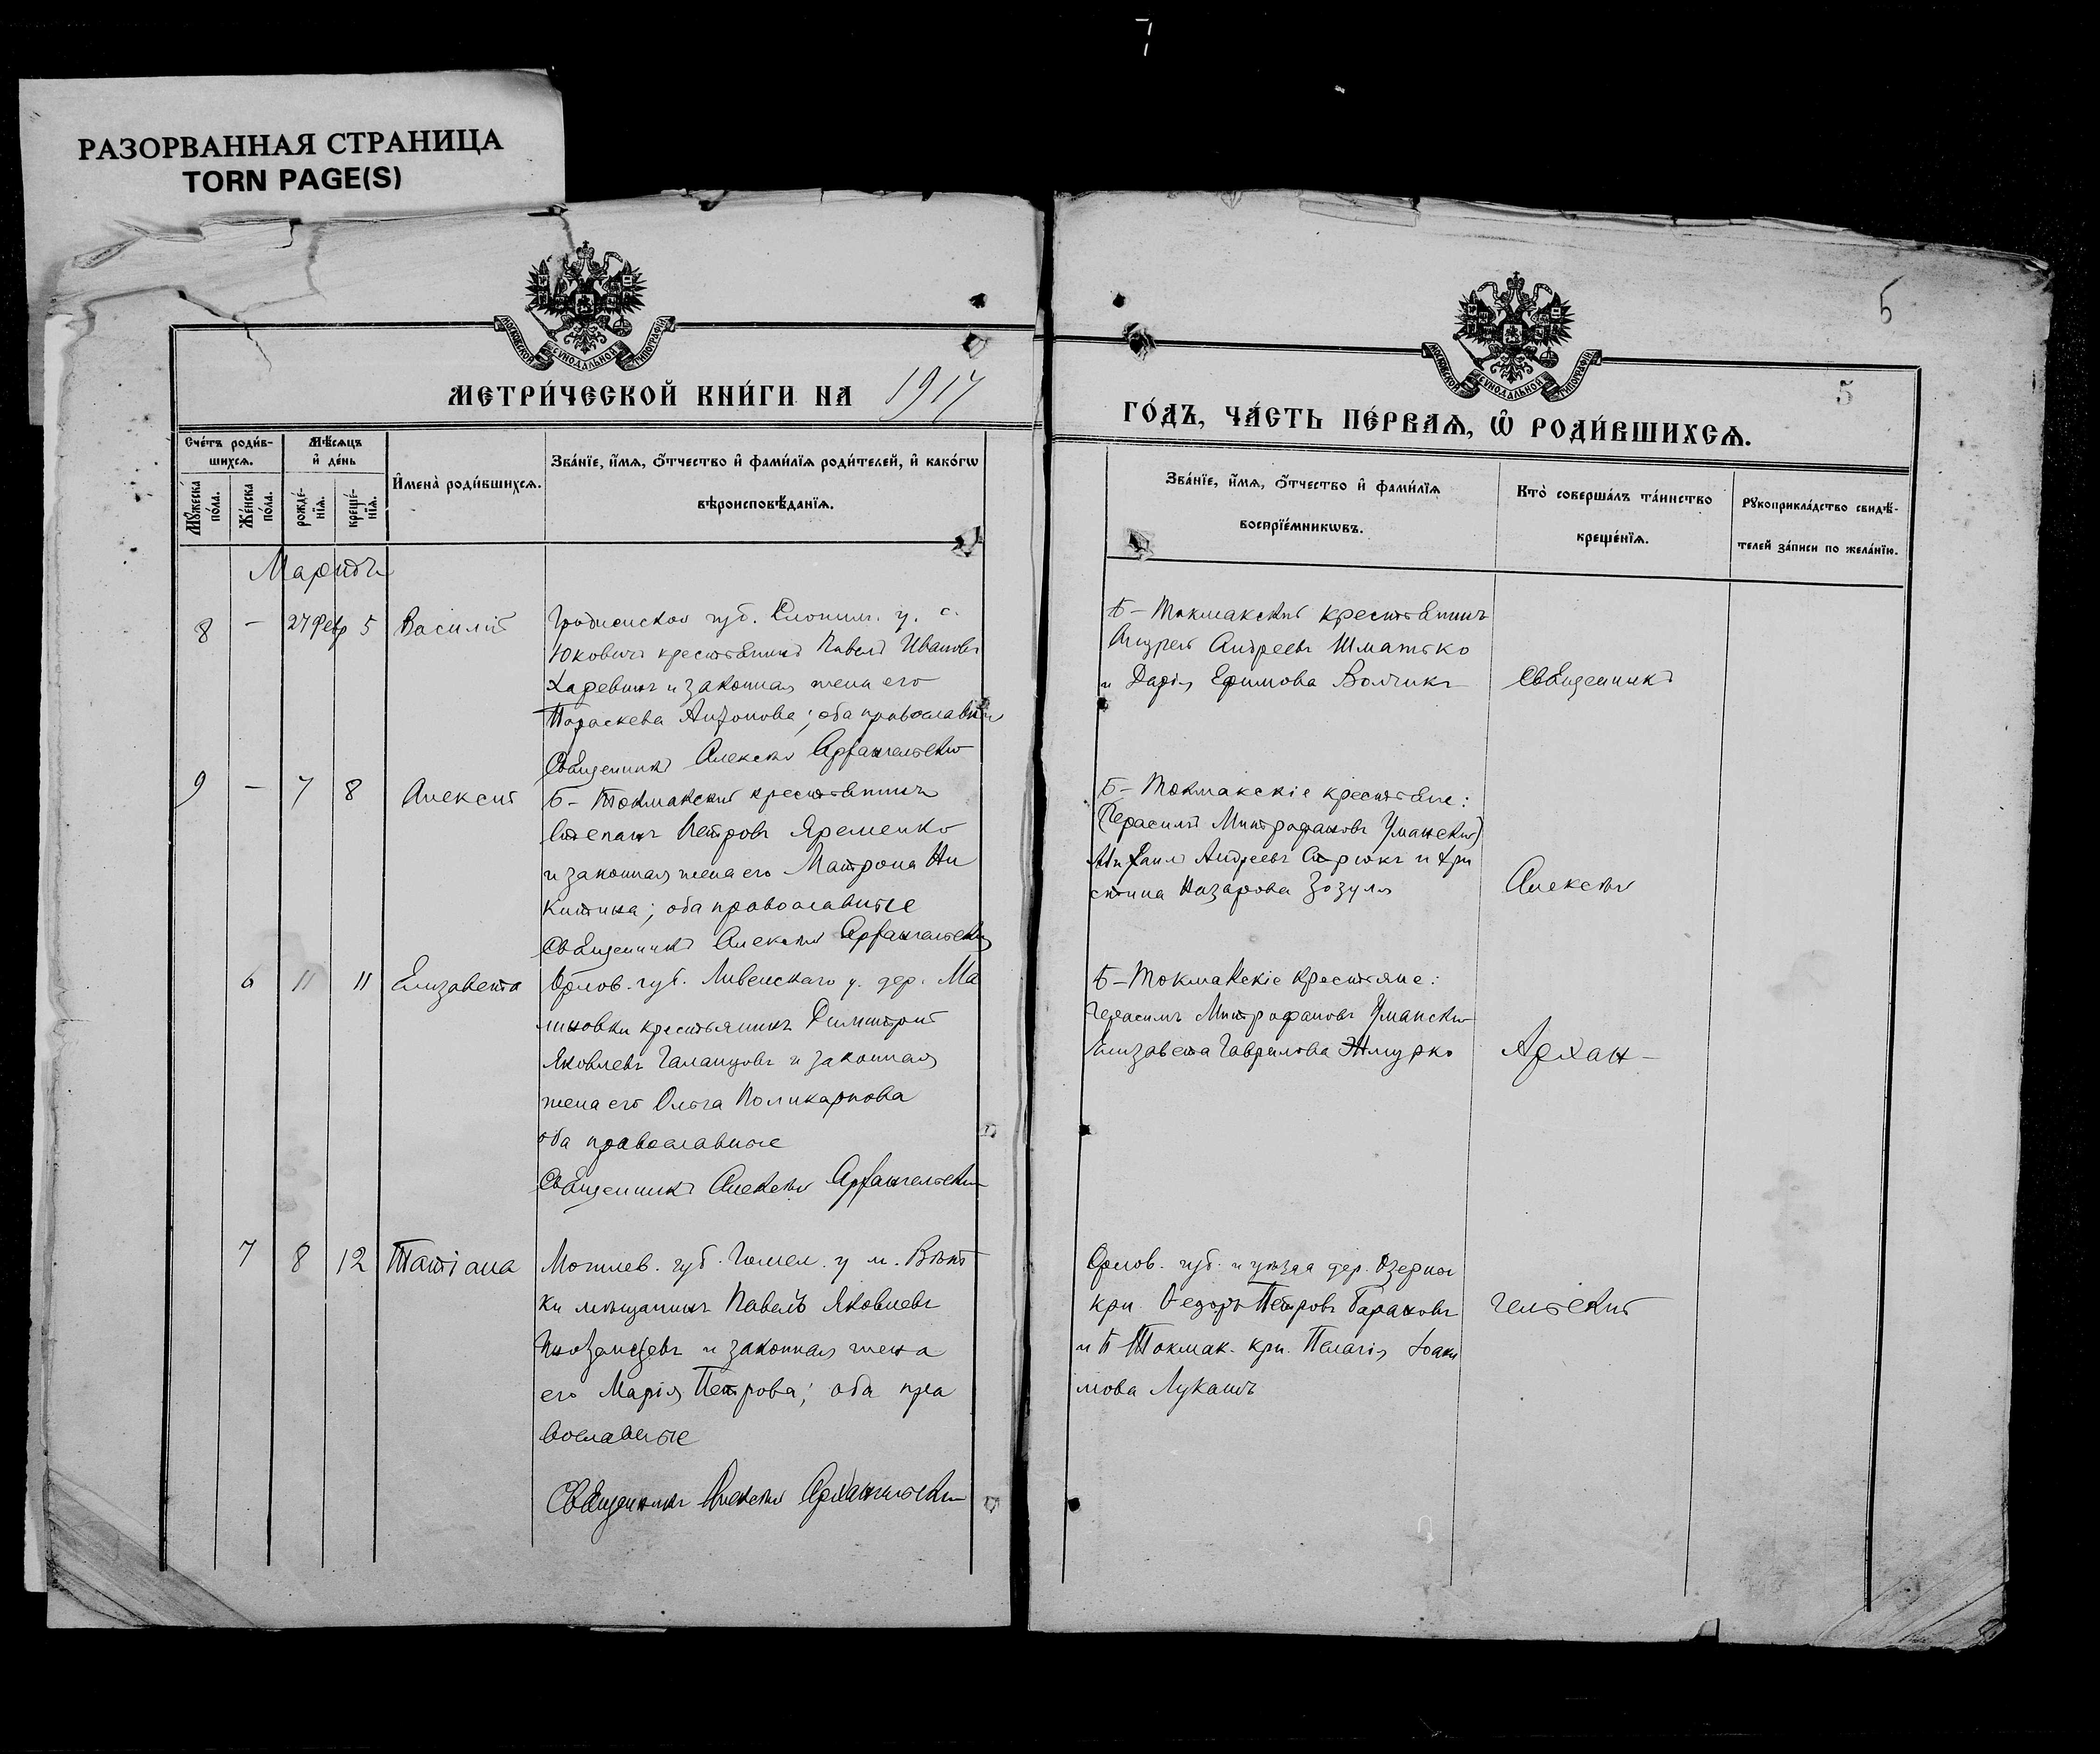 РАЗОРВАННАЯ СТРАНИЦА
TORN PAGE(S)
МОСКОВСКОЙ СѴНОДАЛЬНОЙ ТИПОГРАФІИ
МЕТРИ́ЧЕСКОЙ КНИ́ГИ НА 1917
Сче́тъ роди́в-
шихсѧ.
Мѣ́сяцъ
и҆ де́нь
И҆мена̀ роди́вшихсѧ.
Зва́нїе, и҆́мѧ, ѻ҆́тчество и҆ фами́лїѧ роди́телей, и҆ како́гѡ
вѣроисповѣ́данїѧ.
Мꙋ́жеска по́ла.
Же́нска по́ла.
рожде́-
нїѧ.
креще́-
нїѧ.
Мартъ
8 – 27 Февр 5 Василій
Гродненской губ. Слоним. у. с.
крестьянинъ Павелъ Ивановъ
Харевичъ и законная жена его
Параскева Антонова; оба православные
Священникъ Алексѣй Архангельскій
9 – 7 8 Алексій
Б-Токмакскій крестьянинъ
Степанъ Петровъ Яременко
и законная жена его Матрона Ни
китина; оба православные
Священникъ Алексѣй Архангельскій
6 11 11 Елизавета
Орлов. губ. Ливенскаго у. дер. Ма
линовки крестьянинъ Димитрій
Яковлевъ Галанцовъ и законная
жена его Ольга Поликарпова
оба православные
Священникъ Алексѣй Архангельскій
7 8 12 Татіана
Могилев. губ. Гомел. у м. Вѣтк
ки мѣщанинъ Павелъ Яковлевъ
и законная жена
его Марія Петрова; оба пра
вославные
Священникъ Алексѣй Архангельскій
5
МОСКОВСКОЙ СѴНОДАЛЬНОЙ ТИПОГРАФІИ
5
ГО́ДЪ, ЧА́СТЬ ПЕ́РВАѦ, Ѽ РОДИ́ВШИХСѦ.
Зва́нїе, и҆́мѧ, ѻ҆́тчество и҆ фами́лїѧ
воспрїе́мникѡвъ.
Кто̀ соверша́лъ та́инство
креще́нїѧ.
Рꙋкоприкла́дство свидѣ́-
телей за́писи по жела́нїю.
Б-Токмакскій крестьянинъ
Андрей Андреевъ Шматько
и Дарія Ефимова Волчикъ
Священникъ
Б-Токмакскіе крестьяне:
(Герасимъ Митрофановъ Уманскій)
Михаилъ Андреевъ Стрюкъ и Хри
стина Назарова Зозуля
Алексѣй
Б-Токмакскіе крестьяне:
Герасимъ Митрофановъ Уманскій
Елизавета Гаврилова Жмурко
Архан-
Орлов. губ. и уѣзда дер. Озерной
крн. Ѳедоръ Петровъ Барановъ
и Б Токмак. крн. Пелагія Іоаки
мова Лукашъ
гельскій